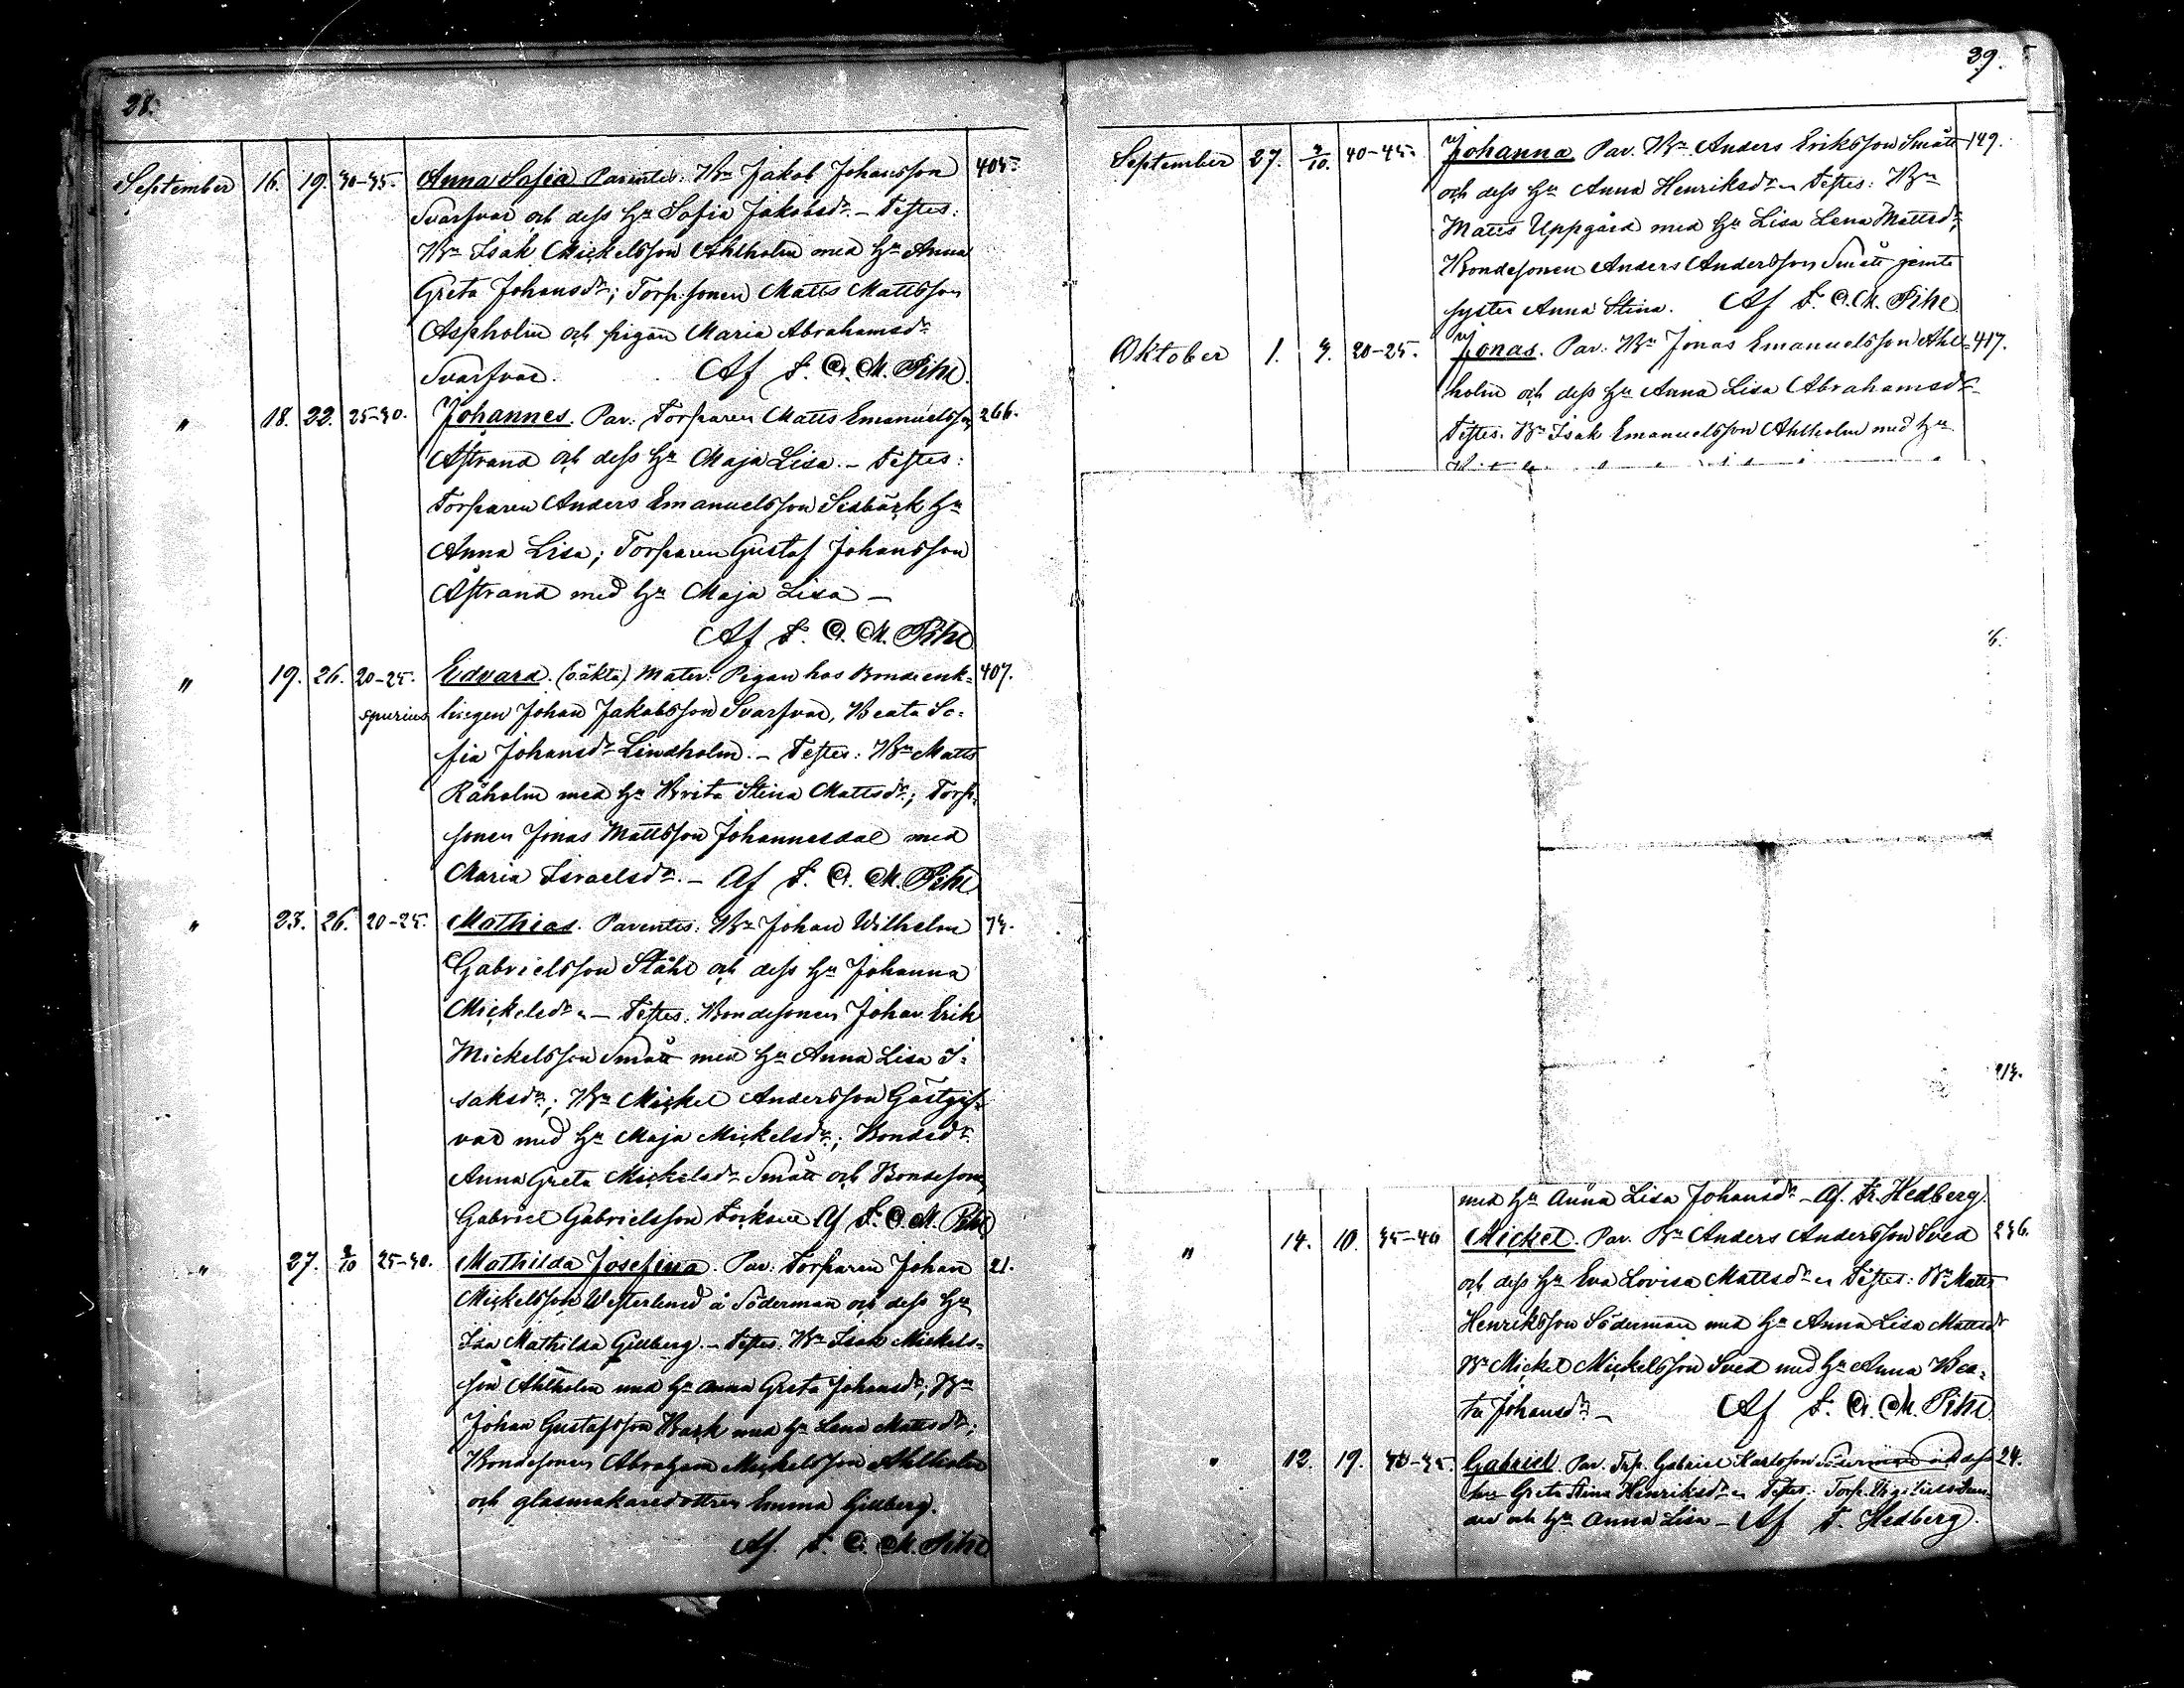 28.
September 16. 19. 30-35. Anna Sofia Parentes: Bn Jakob Johansson 405.
Svarfvar och dess Hu Sofia Jakobsdr. - Testes:
Bn Isak Mickelsson Ahlholm med Hu Anna
Greta Johansdr; Torp.sonen Matts Mattsson
Aspholm och pigan Maria Abrahamsdr
Svarfvar. Af F. O. M. Pihl
" 18. 22. 25-30. Johannes. Par: Torparen Matts Emanuelsson 266.
Åstrand och dess Hu Maja Lisa. - Testes:
Torparen Anders Emanuelsson Sidbäck Hu
Anna Lisa; Torparen Gustaf Johansson
Åstrand med Hu Maja Lisa -
Af F. O. M. Pihl
" 19. 26. 20-25. Edvard. (oäkta) Mater: Pigan hos Bondeenk= 407.
spurius lingen Johan Jakobsson Svarfvar, Beata So=
fia Johansdr Lindholm. - Testes: Bn Matts
Råholm med Hu Brita Stina Mattsdr; Torp.
sonen Jonas Mattsson Johannesdal med
Maria Israelsdr. - Af F. O. M. Pihl
" 23. 26. 20-25. Mathias. Parentes: Bn Johan Wilhelm 73.
Gabrielsson Ståhl och dess Hu Johanna
Mickelsdr. - Testes: Bondesonen Johan Erik
Mickelsson Smått med Hu Anna Lisa I=
saksdr; Bn Mickel Andersson Gästgif=
var med Hu Maja Mickelsdr; Bondedr
Anna Greta Mickelsdr Smått och Bondeson
Gabriel Gabrielsson Af F. O. M. Pihl
" 27. 3/10 25-30. Mathilda Josefina. Par: Torparen Johan 21.
Mickelsson Westerlund å Söderman och dess Hu
Ida Mathilda Gillberg. - Testes: Bn Isak Mickels=
son Ahlholm med Hu Anna Greta Johansdr; Bn
Johan Gustafsson Back med Hu Lena Mattsdr;
Bondesonen Abraham Mickelsson Ahlholm
och glasmakaredottren Emma Gillberg.
Af F. O. M. Pihl
39.
September 27. 3/10. 40-45. Johanna Par. Bn Anders Eriksson Smått 149.
och dess Hu Anna Henriksdr Testes: Bn
Matts Uppgård med Hu Lisa Lena Mattsdr;
Bondesonen Anders Andersson Smått jemte
syster Anna Stina. Af F. O. M. Pihl
Oktober 1. 3. 20-25. Jonas. Par: Bn Jonas Emanuelsson Ahl= 417.
holm och dess Hu Anna Lisa Abrahamsdr
Testes. Bn Isak Emanuelsson Ahlholm med Hu
med Hu Anna Lisa Johansdr - Af. Fr. Hedberg.
" 14. 10. 35-40 Mickel. Par. Bn Anders Andersson Sved 236.
och dess Hu Eva Lovisa Mattsdr Testes: Bn Matts
Henriksson Söderman med Hu Anna Lisa Mattsdr
Bn Mickel Mickelsson Sved med Hu Anna Bea=
ta Johansdr - Af F. O. M. Pihl
" 12. 19. 30-35. Gabriel. Par. Trp. Gabriel Karlsson Söderman och dess 24.
Hu Greta Stina Henriksdr Testes: Torp.
och Hu Anna Lisa - Af F. Hedberg.